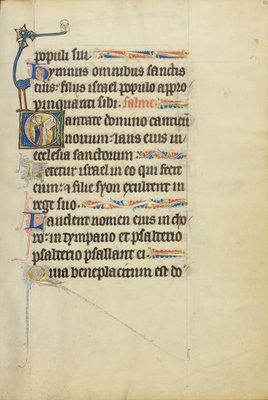 populi sui.
Hymnus omnibus sanctis
eius: filiis israel populo appro
pinquanti sibi. salme.
Cantate domino canticum
nouum: laus eius in
ecclesia sanctorum.
Letetur israel in eo qui fecit
eum: & filie syon exultent in
rege suo.
Laudent nomen eius in cho
ro: in tympano et psalterio
psalterio psallant ei.
Quia beneplacitum est do